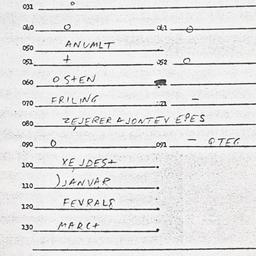 031 o
040 O 041 O
050 ANUMLT
051 + 052 O
060 OSTEN
070 FRILING 071 –
080
090 O 091 – OTEG
100 YEJDEST
110 JANVAR
120 FEVRALS
130 MARCT